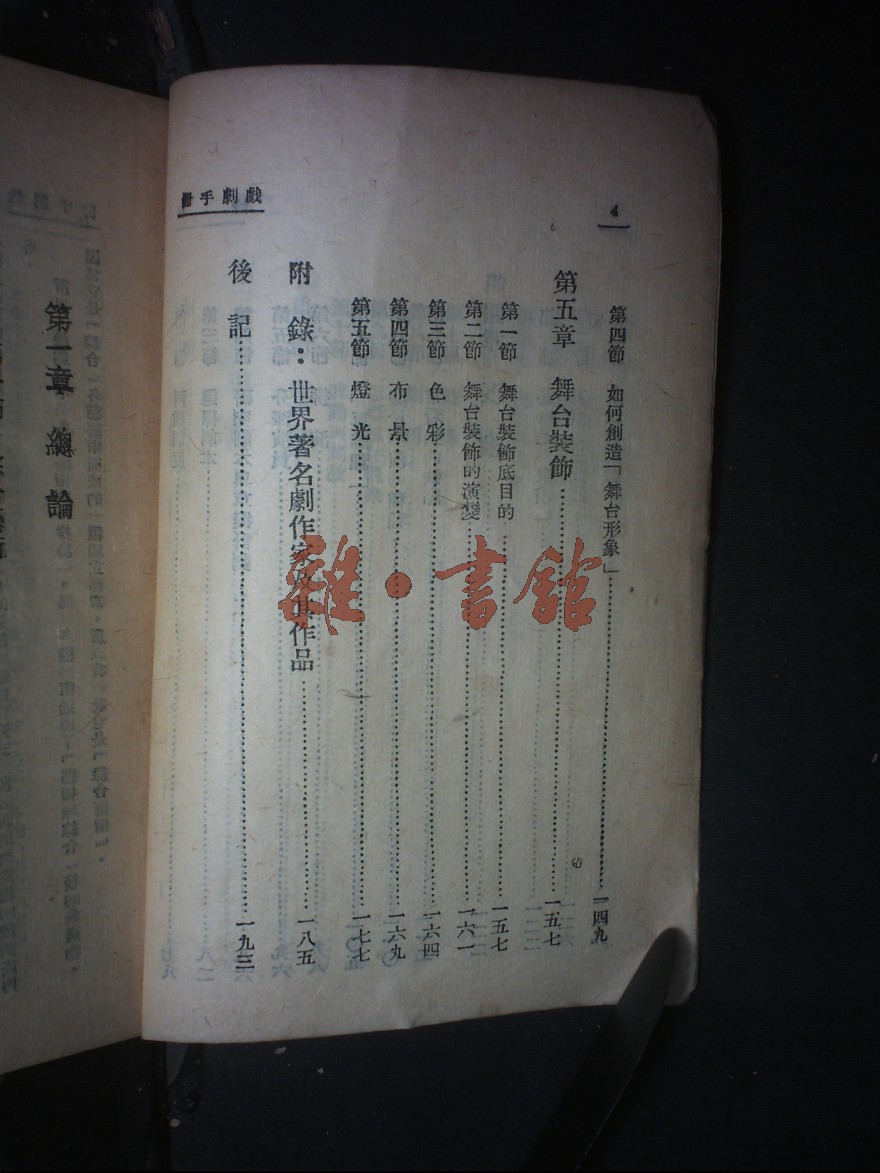 戲劇手冊
4
第四節　如何創造「舞台形象」……一四九
第五章　舞台裝飾……一五七
第一節　舞台裝飾底目的……一五七
第二節　舞台裝飾的演變……一六一
第三節　色彩……一六四
第四節　布景……一六九
第五節　燈光……一七七
附錄：世界著名劇作家及其作品……一八五
後記……一九三
雜·書館
第一章　總論